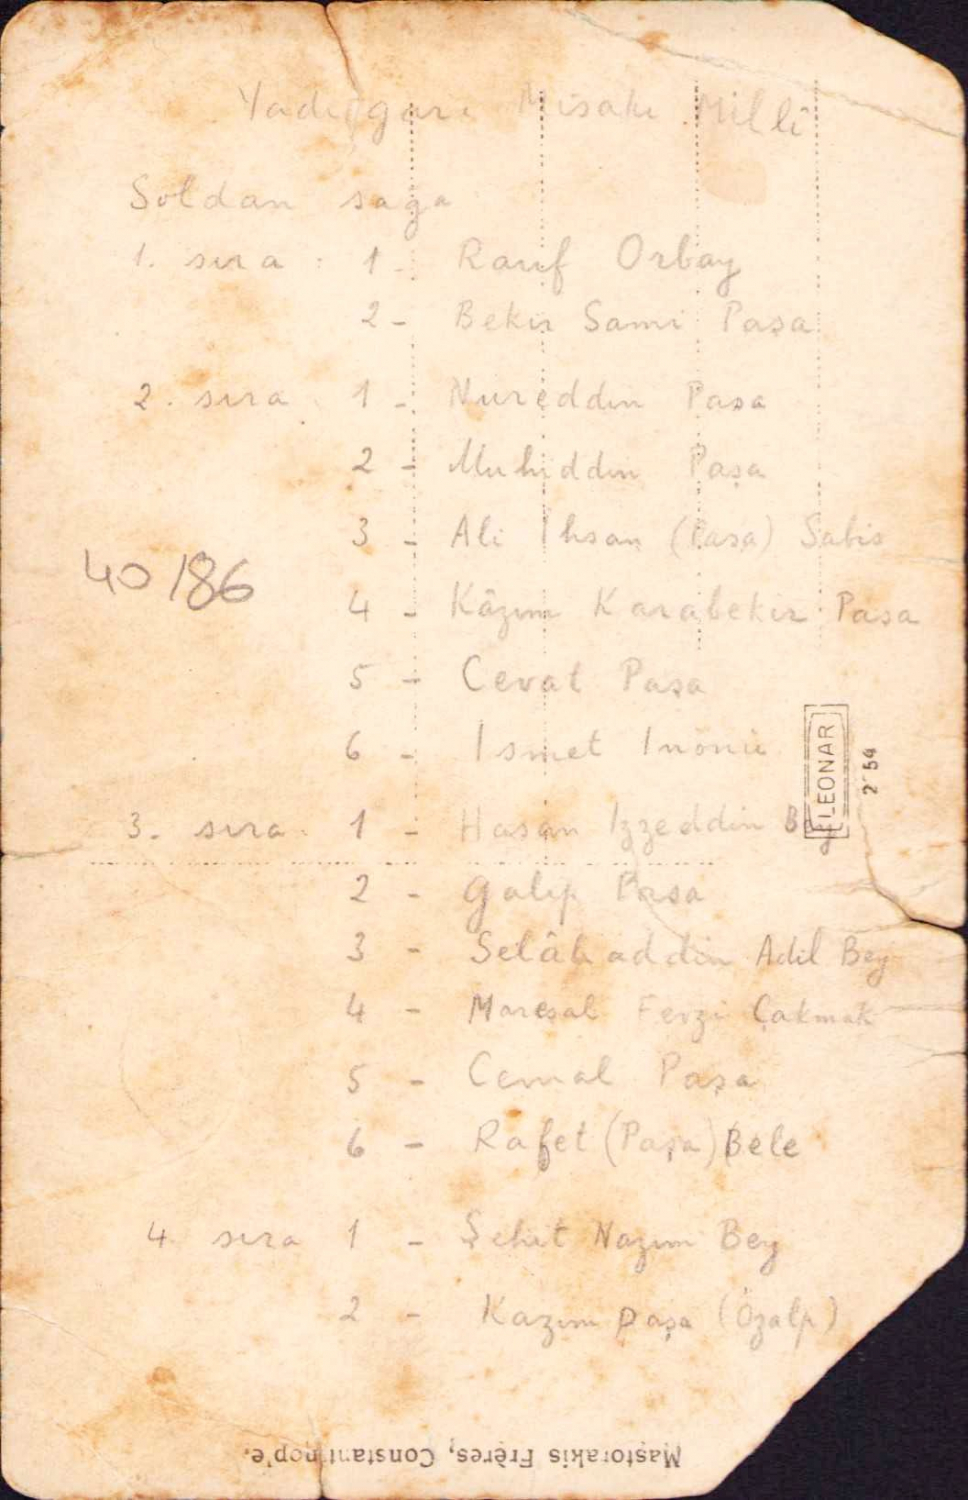 Yadigarı Misakı Millî
Soldan sağa
1. sıra : 1 - Rauf Orbay
2 - Bekir Sami Paşa
2. sıra 1 - Nureddin Paşa
2 - Muhiddin Paşa
3 - Ali İhsan (Paşa) Sabis
40/86
4 - Kâzım Karabekir Paşa
5 - Cevat Paşa
6 - İsmet İnönü
LEONAR
2 54
3. sıra : 1 - Hasan İzzeddin Bey
2 - Galip Paşa
3 - Selâhaddin Adil Bey
4 - Mareşal Fevzi Çakmak
5 - Cemal Paşa
6 - Rafet (Paşa) Bele
4. sıra 1 - Şehit Nazım Bey
2 - Kazım paşa (Özalp)
Mastorakis Frères, Constantinop'e.